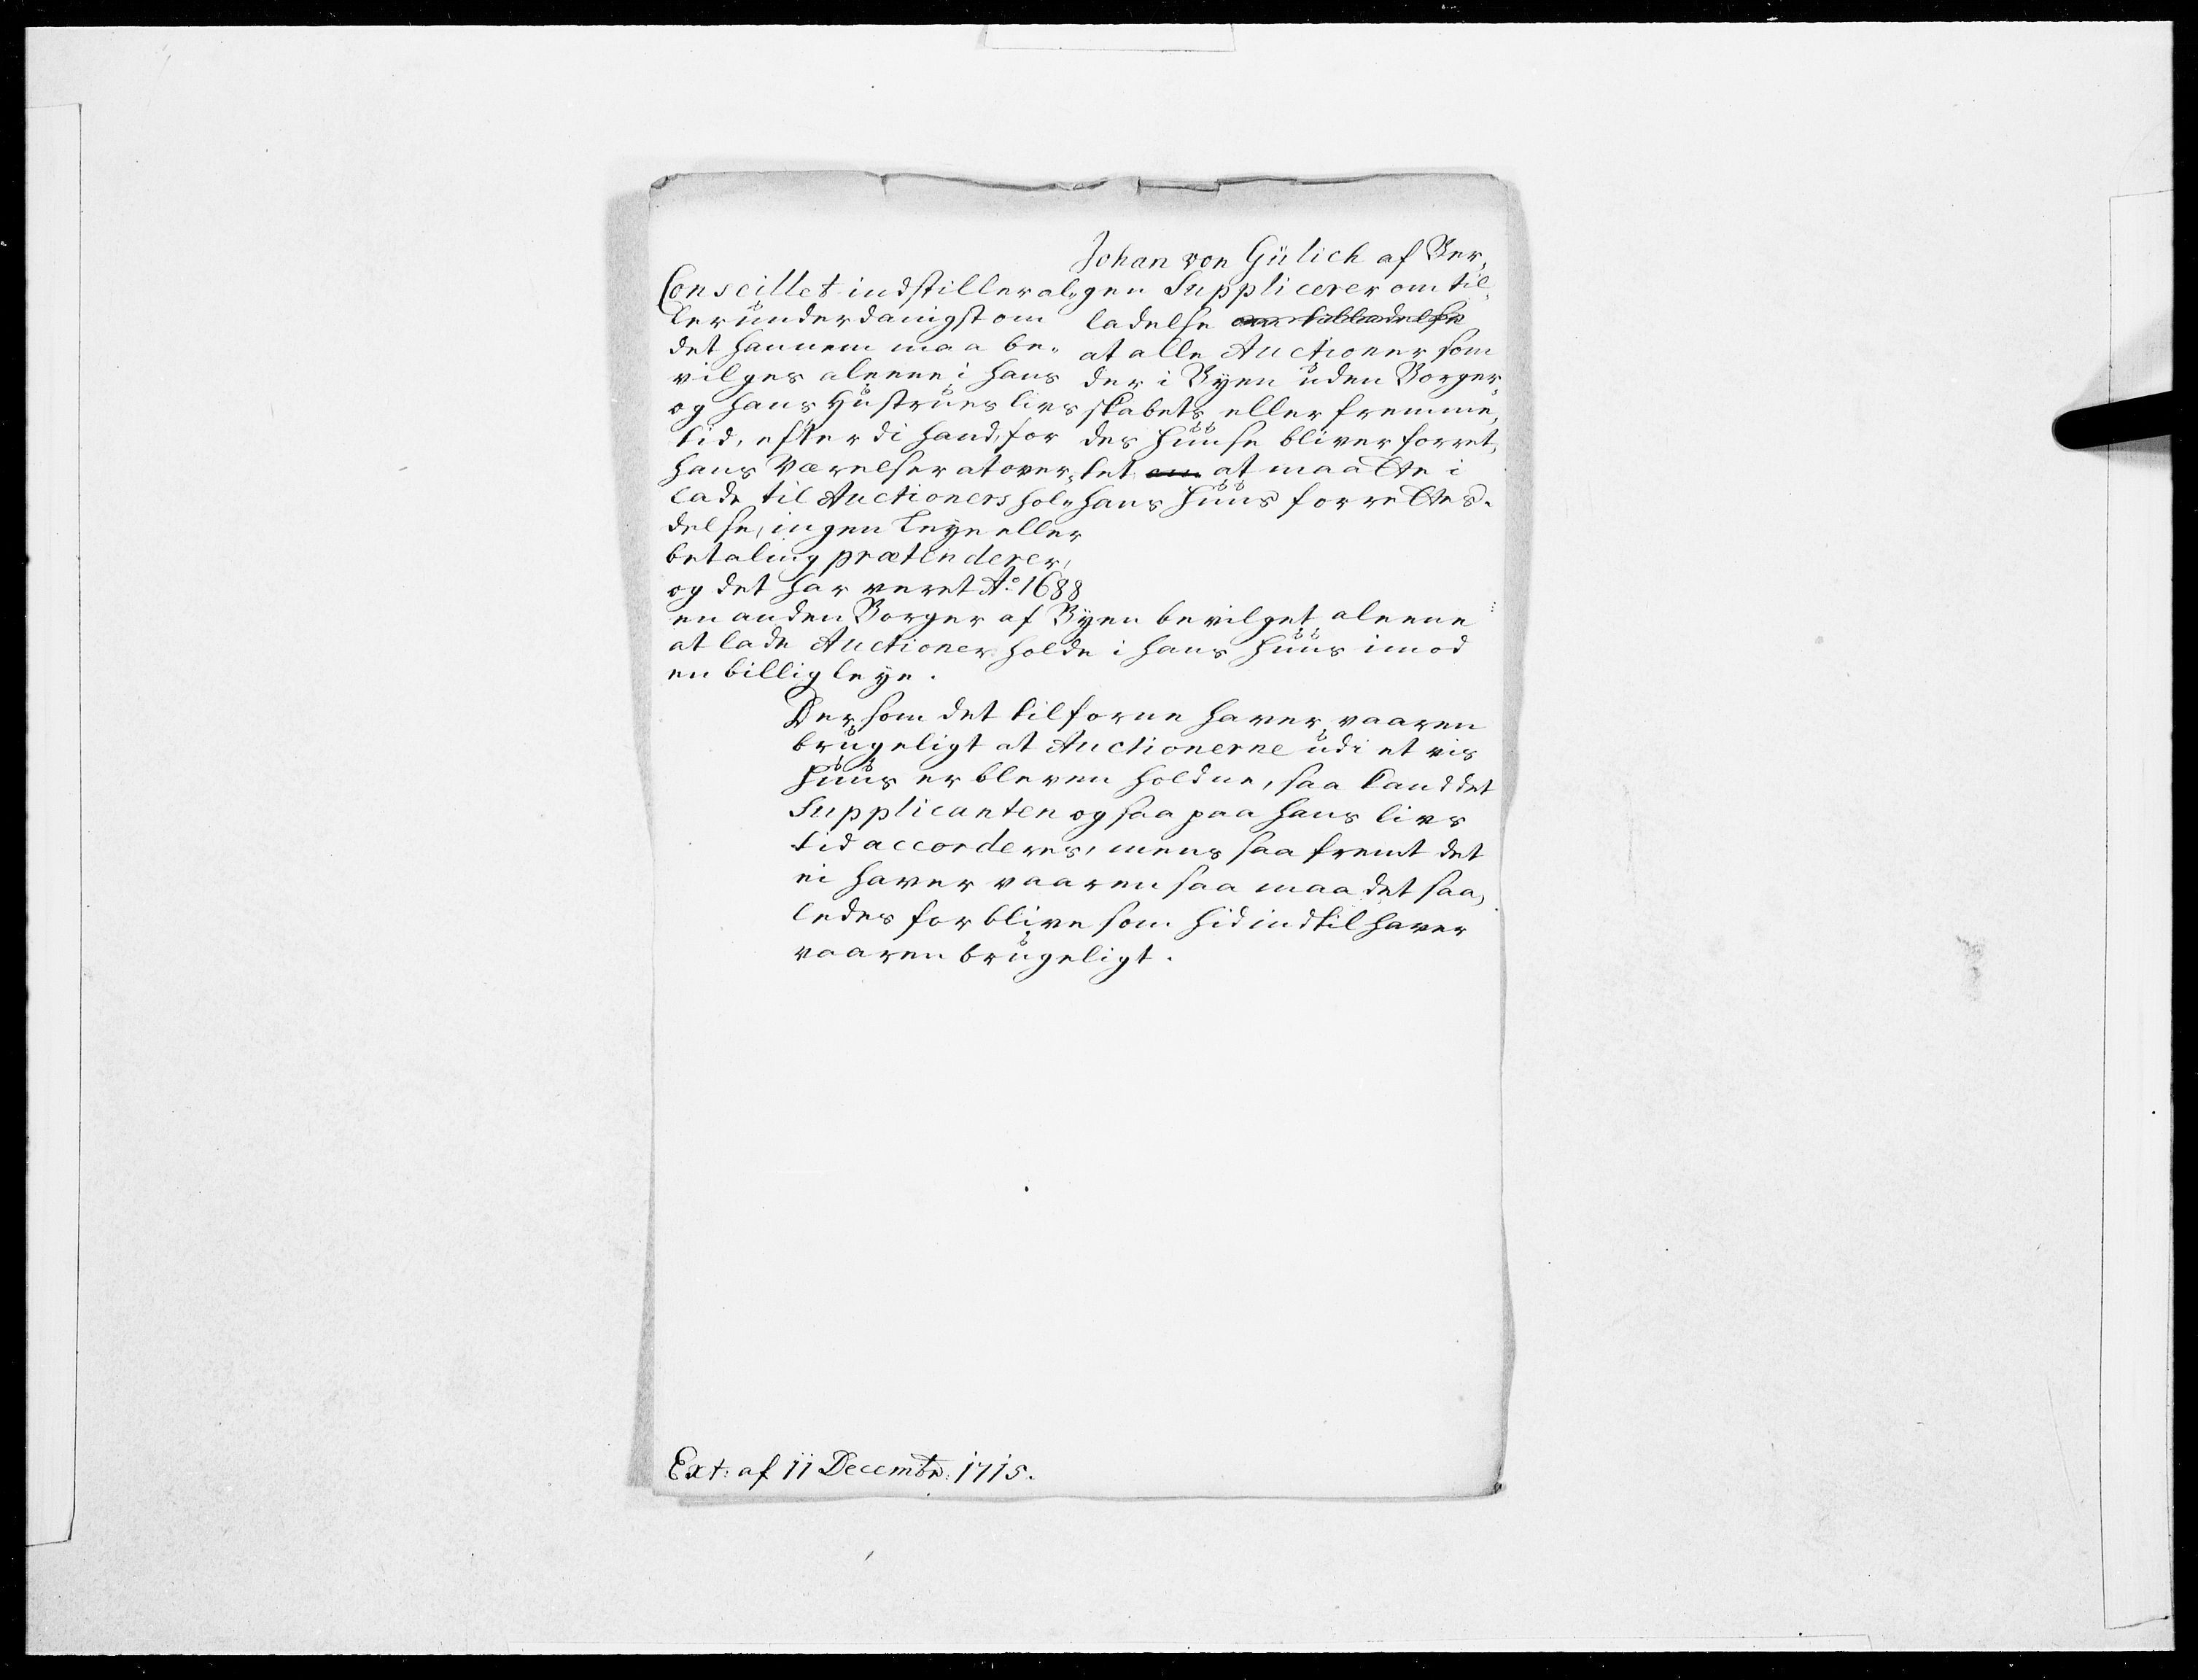 Johan von Gülich af Ber,,
gen Supplicerer om til,,
ladelse om tilladelse
at alle Auctioner som
der i Byen uden Borger,,
skabets eller fremme,,
des Huuse bliver forret,,
tet om at maatte i
hans Huus forrettes.
Conseillet indstiller al,,
lerunderdanigst om
det hannem maa be,,
vilges aleene i hans
og hans Hustrues livs
tid, efterdi hand, for
hans Værelser at over,,
lade til Auctioners hol,,
delse, ingen Leye eller
betaling prætenderer,
og det har veret Ao 1688
en anden Borger af Byen bevilget aleene
at lade Auctioner holde i hans Huus imod
en billig leye.
Dersom det tilforne haver vaaren
brugeligt at Auctionerne udi et vis
Huus er bleven holdne, saa kand det
Supplicanten ogsaa paa hans livs
tid accorderes, mens saa fremt det
ei haver vaaren saa maa det saa,,
ledes forblive som hid indtil haver
vaaren brugeligt.
Ext: af 11 Decembr: 1715.